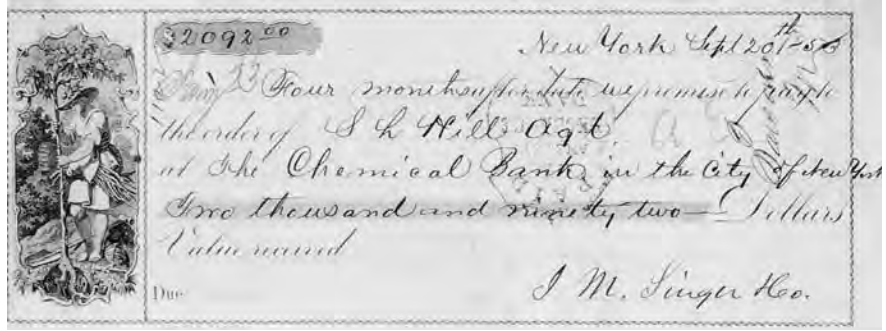 $2092 00
New York Sept 20th 53
Four months after date we promise to pay to
the order of S L Hill Agt
at The Chemical Bank in the City of New York
Two thousand and ninety two Dollars
Value received
Due
I M. Singer & Co.